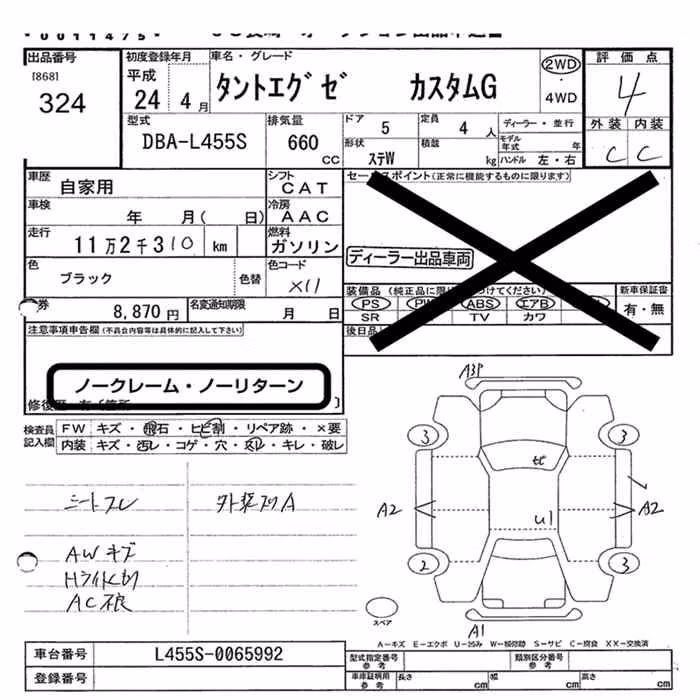 出品番号
[868]
324
初度登録年月
平成
24 4 月
車名・グレード
タントエグゼ カスタムG
2WD
・
4WD
評価点
4
型式
DBA-L455S
排気量
660
cc
ドア
5
定員
4 人
ディーラー・並行
モデル年式 年
形状
ステW
積載
kg
ハンドル 左・右
外装 内装
C C
車歴
自家用
シフト
CAT
車検
年 月( 日)
冷房
AAC
走行
11万2千310 km
燃料
ガソリン
色
ブラック
色替
色コード
X11
券
8,870円
名変通知期限
月 日
セールスポイント(正常に機能するものに限ります)
ディーラー出品車両
PS ABS エアB
SR TV カワ
新車保証書
有・無
後日品
注意事項申告欄(不具合内容等は具体的に記入して下さい)
ノークレーム・ノーリターン
検査員
記入欄
FW キズ・飛石・ヒビ割・リペア跡・×要
内装 キズ・汚レ・コゲ・穴・スレ・キレ・破レ
シートスレ
AWキズ
AC不良
A3P
3 3
A2 A2
U1
2 3
A1
スペア
A-キズ E-エクボ U-凹み W-板修跡 S-サビ C-腐食 XX-交換済
車台番号
L455S-0065992
登録番号
型式指定番号
参考
類別区分番号
参考
車庫証明用
参考
長さ cm
幅 cm
高さ cm